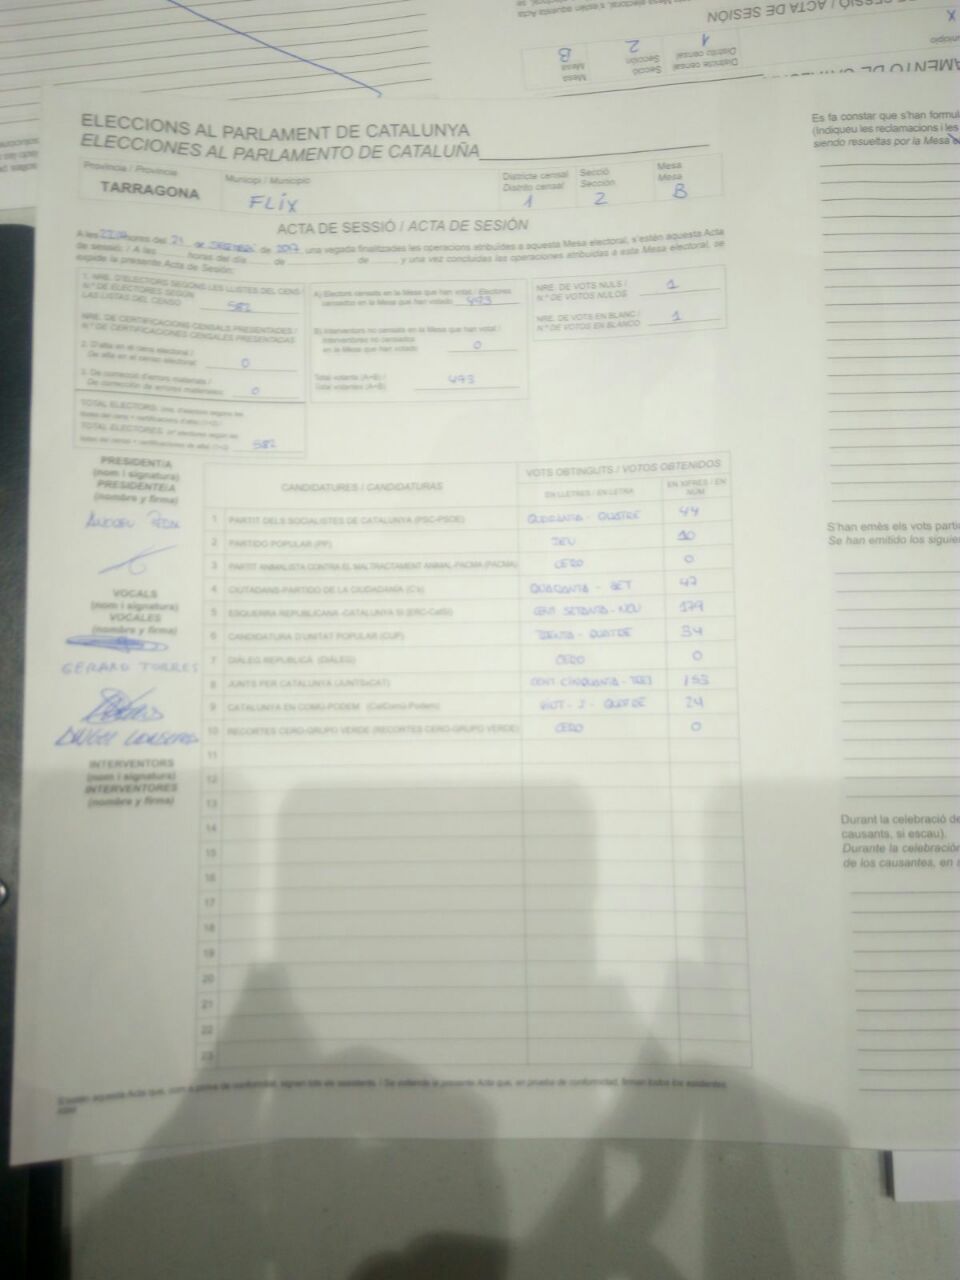 ELECCIONS AL PARLAMENT DE CATALUNYA
ELECCIONES AL PARLAMENTO DE CATALUÑA
Provincia / Provincia
TARRAGONA
Municipi / Municipio
FLIX
Districte censal
Distrito censal
1
Secció
Sección
2
Mesa
Mesa
B
ACTA DE SESSIÓ / ACTA DE SESIÓN
A les hores del 21 de de 2017 una vegada finalitzades les operacions atribuïdes a aquesta Mesa electoral, s'estén aquesta Acta
de sessió: / A las horas del día de de y una vez concluidas las operaciones atribuidas a esta Mesa electoral, se
expide la presente Acta de Sesión:
1. NRE. D'ELECTORS SEGONS LES LLISTES DEL CENS
N.º DE ELECTORES SEGÚN
LAS LISTAS DEL CENSO 582
NRE. DE CERTIFICACIONS CENSALS PRESENTADES /
N.º DE CERTIFICACIONES CENSALES PRESENTADAS
2. D'alta en el cens electoral /
De alta en el censo electoral: 0
3. De correcció d'errors materials /
De corrección de errores materiales: 0
TOTAL ELECTORS:
TOTAL ELECTORES: 582
A) Electors censats en la Mesa que han votat / Electores
censados en la Mesa que han votado 493
B) Interventors no censats en la Mesa que han votat /
Interventores no censados
en la Mesa que han votado 0
Total votants (A+B) /
Total votantes (A+B) 493
NRE. DE VOTS NULS /
N.º DE VOTOS NULOS 1
NRE. DE VOTS EN BLANC /
N.º DE VOTOS EN BLANCO 1
PRESIDENT/A
(nom i signatura)
PRESIDENTE/A
(nombre y firma)
VOCALS
(nom i signatura)
VOCALES
(nombre y firma)
GERARD TORRES
INTERVENTORS
(nom i signatura)
INTERVENTORES
(nombre y firma)
CANDIDATURES / CANDIDATURAS
VOTS OBTINGUTS / VOTOS OBTENIDOS
EN LLETRES / EN LETRA
EN XIFRES / EN NÚM
1 PARTIT DELS SOCIALISTES DE CATALUNYA (PSC-PSOE) QUARANTA - QUATRE 44
2 PARTIDO POPULAR (PP) DEU 10
3 PARTIT ANIMALISTA CONTRA EL MALTRACTAMENT ANIMAL-PACMA (PACMA) CERO 0
4 CIUTADANS-PARTIDO DE LA CIUDADANÍA (C's) QUARANTA - SET 47
5 ESQUERRA REPUBLICANA -CATALUNYA SÍ (ERC-CatSí) CENT SETANTA - NOU 179
6 CANDIDATURA D'UNITAT POPULAR (CUP) TRENTA - QUATRE 34
7 DIÀLEG REPUBLICÀ (DIÀLEG) CERO 0
8 JUNTS PER CATALUNYA (JUNTSxCAT) CENT CINQUANTA - TRES 153
9 CATALUNYA EN COMÚ-PODEM (CatComú-Podem) VINT - I - QUATRE 24
10 RECORTES CERO-GRUPO VERDE (RECORTES CERO-GRUPO VERDE) CERO 0
11
12
13
14
15
16
17
18
19
20
21
22
23
S'estén aquesta Acta que, com a prova de conformitat, signen tots els assistents. / Se extiende la presente Acta que, en prueba de conformidad, firman todos los asistentes
Es fa constar que s'han formul
(Indiqueu les reclamacions i les
siendo resueltas por la Mesa
S'han emès els vots parti
Se han emitido los siguien
Durant la celebració de
causants, si escau).
Durante la celebración
de los causantes, en
ACTA DE SESIÓN
Districte censal
Distrito censal
1
Secció
Sección
2
Mesa
Mesa
B